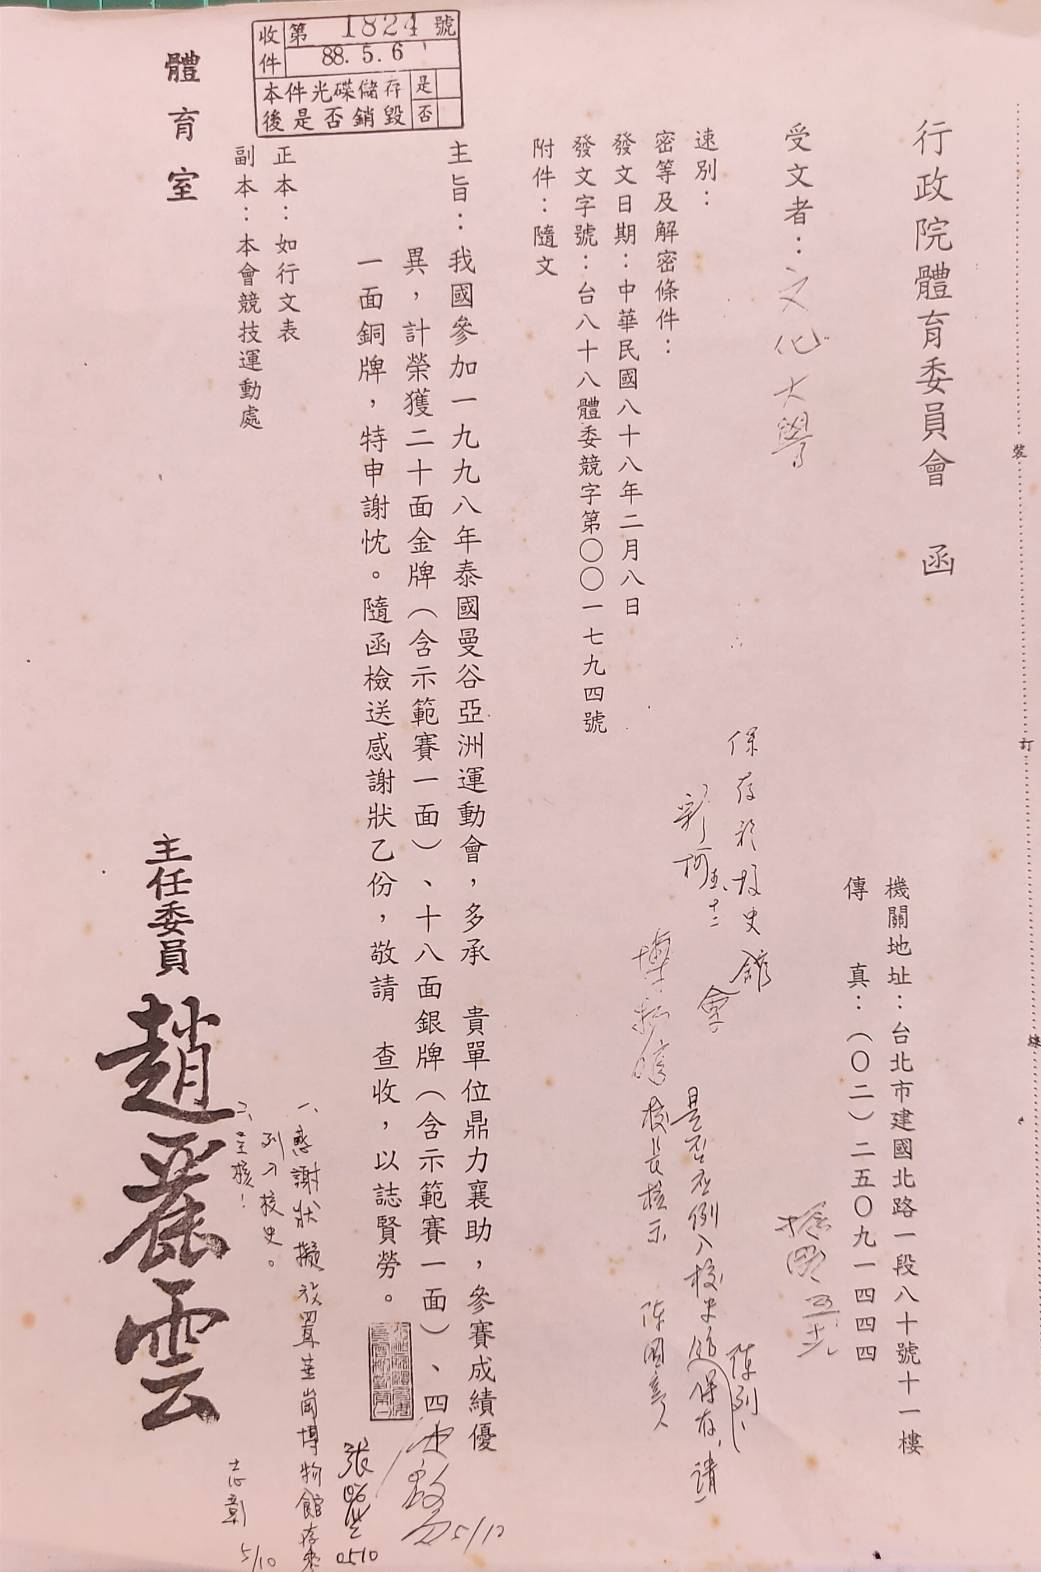 行政院體育委員會　函
機關地址：台北市建國北路一段八十號十一樓
傳　　真：（〇二）二五〇九一四四四
受文者：文化大學
速別：
密等及解密條件：
發文日期：中華民國八十八年二月八日
發文字號：台八十八體委競字第〇〇一七九四號
附件：隨文
主旨：我國參加一九九八年泰國曼谷亞洲運動會，多承　貴單位鼎力襄助，參賽成績優
異，計榮獲二十面金牌（含示範賽一面）、十八面銀牌（含示範賽一面）、四
一面銅牌，特申謝忱。隨函檢送感謝狀乙份，敬請　查收，以誌賢勞。
正本：如行文表
副本：本會競技運動處
收件
第 1824 號
88. 5. 6
本件光碟儲存
後是否銷毀
是
否
體育室
主任委員 趙麗雲
保存於校史館
會
是否應例入校史館保存，請
陳列、
校長核示
一、感謝狀擬放置華岡博物館存、
列入校史。
二、呈核！
志彰 5/10
0510
5/10
裝
訂
線